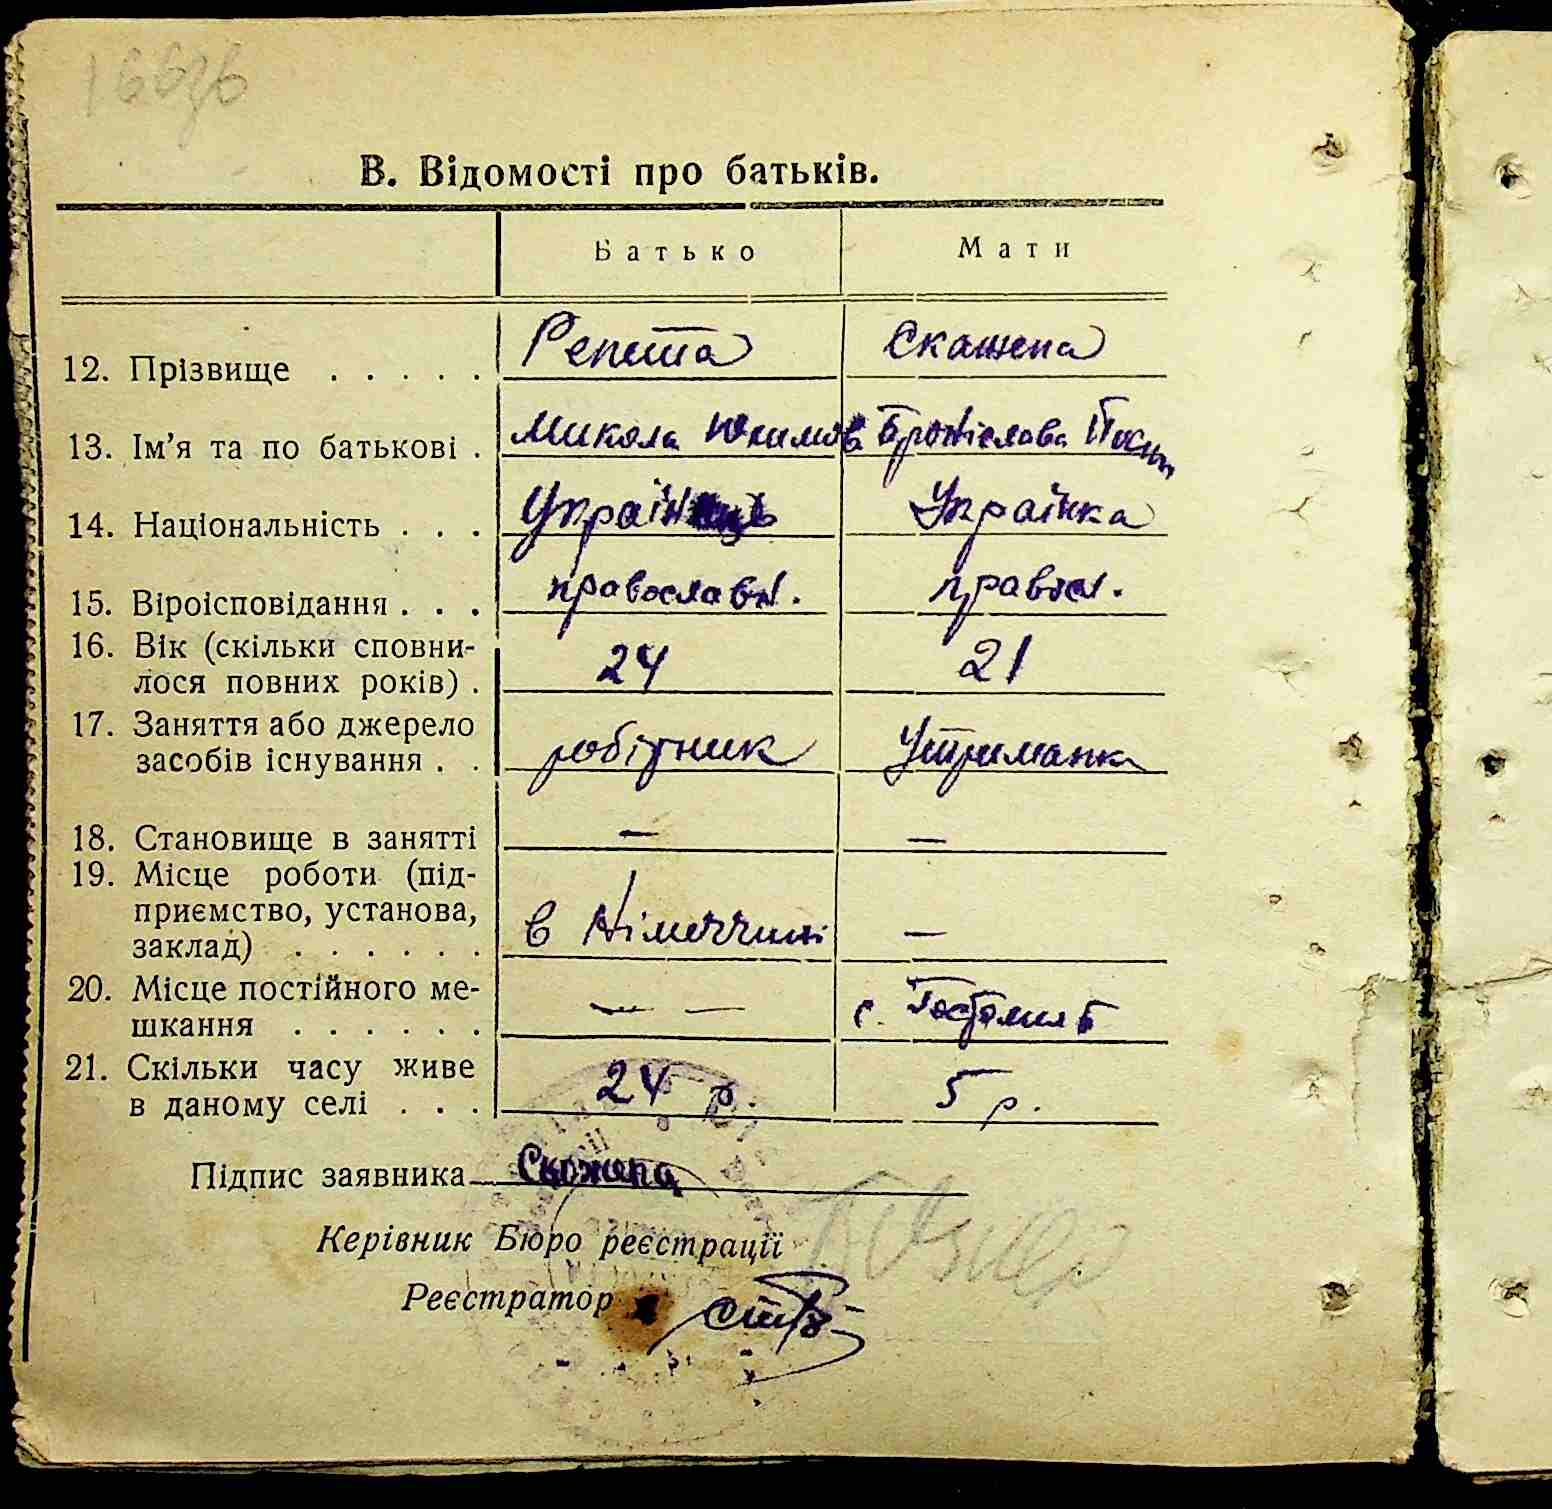 В. Відомості про батьків.
Батько Мати
12. Прізвище . . . . . Репета Скажена
13. Ім'я та по батькові . Микола Юхимов Броніслава Йосип
14. Національність . . . Українець Українка
15. Віроісповідання . . . православн. правосл.
16. Вік (скільки сповни-
лося повних років) . 24 21
17. Заняття або джерело
засобів існування . . робітник Утриманка
18. Становище в занятті — —
19. Місце роботи (під-
приємство, установа,
заклад) . . . . . . в Німеччині —
20. Місце постійного ме-
шкання . . . . . . — — с. Гостомиль
21. Скільки часу живе
в даному селі . . . 24 р. 5 р.
Підпис заявника Скажена
Керівник Бюро реєстрації
Реєстратор